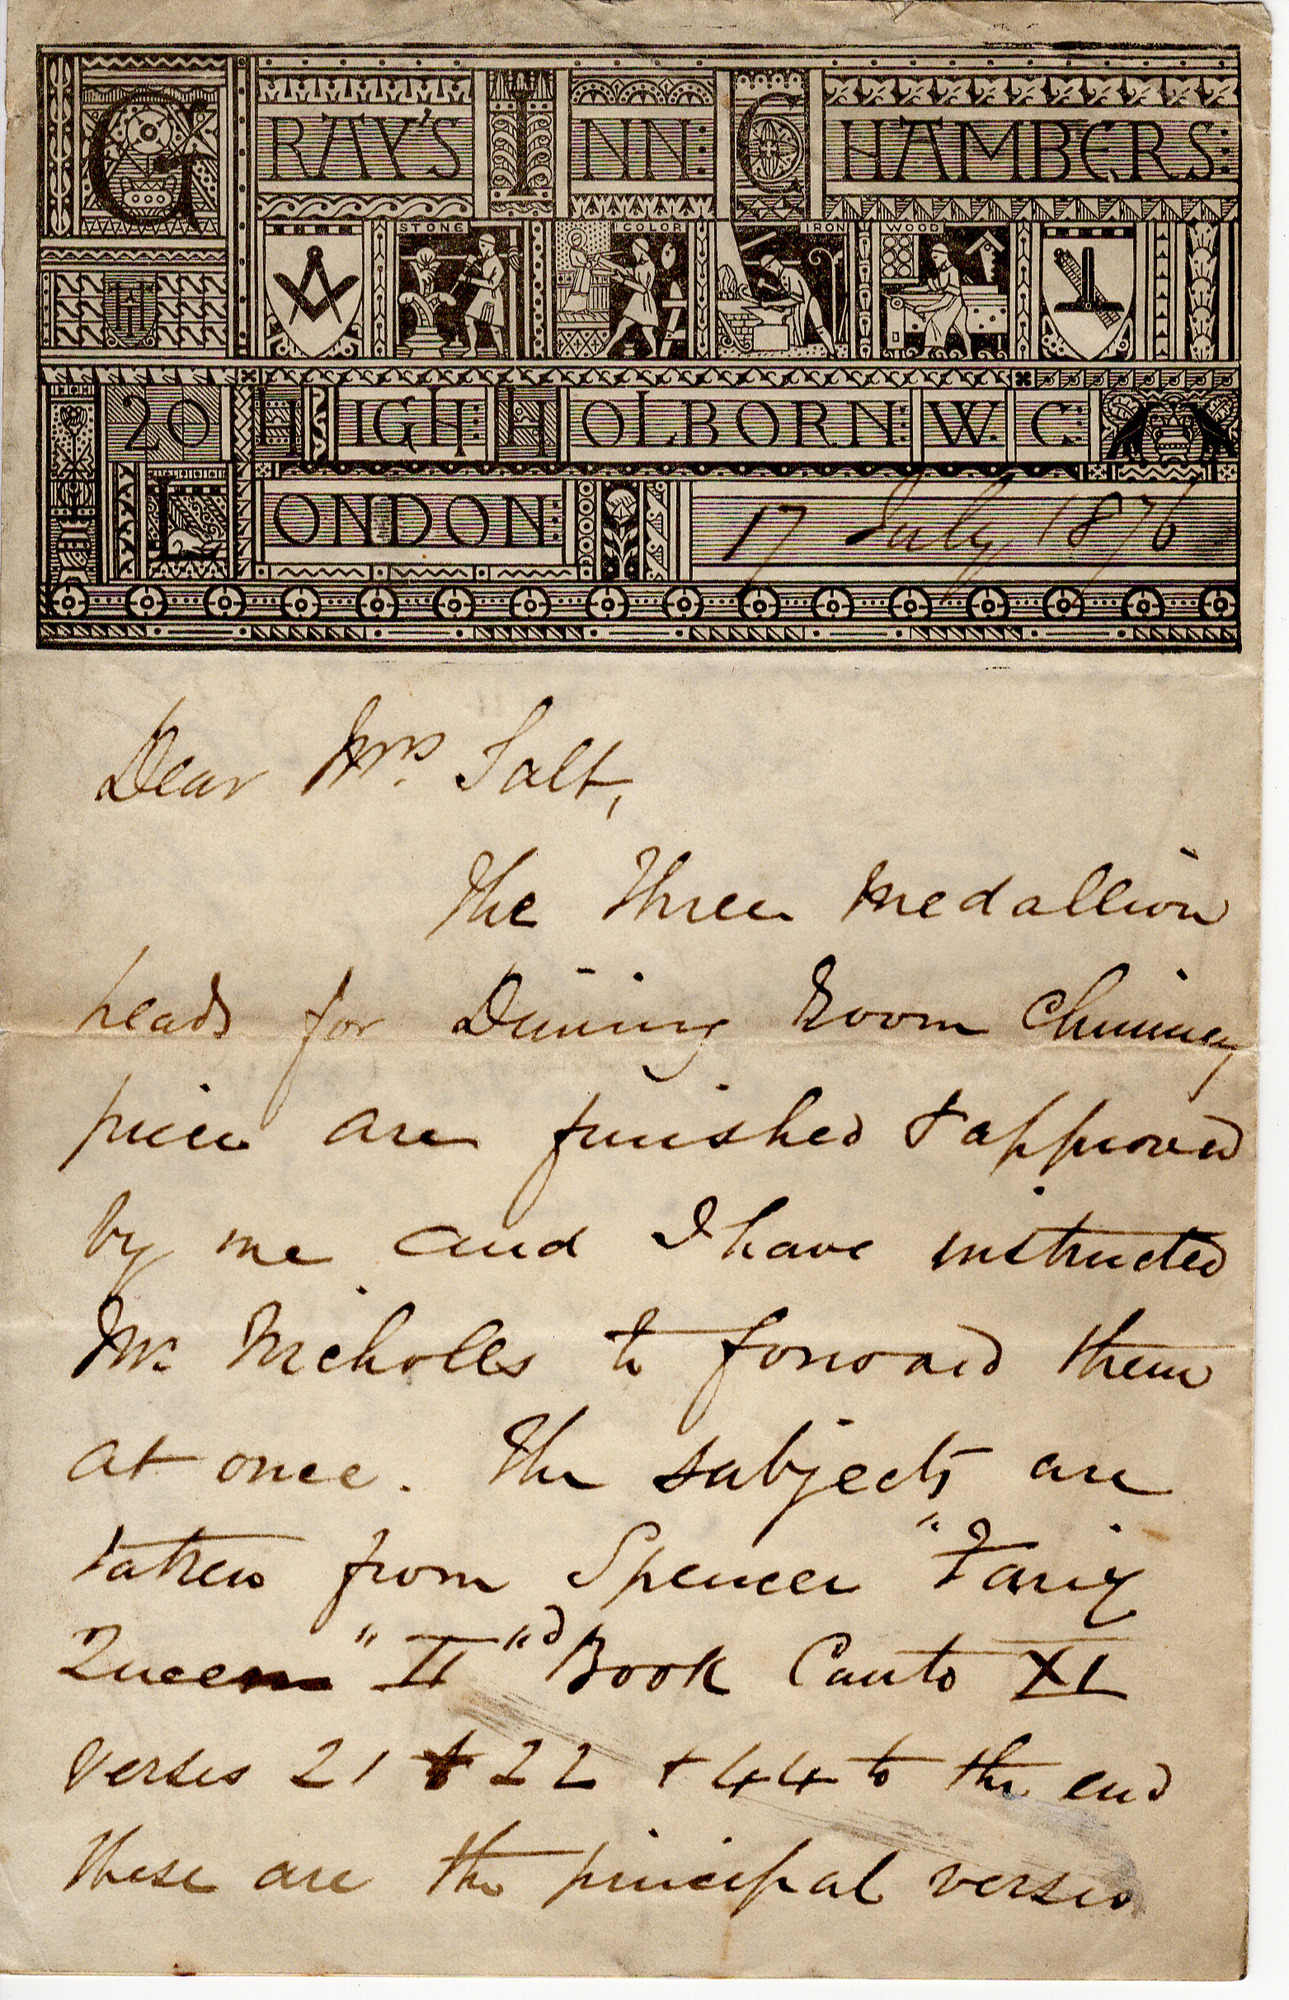 GRAY'S INN CHAMBERS:
STONE COLOR IRON WOOD
20 HIGH HOLBORN: W. C:
LONDON: 17 July 1876
Dear Mrs. Salt,
The Three medallion
heads for Dining Room Chimney
piece are finished & approved
by me and I have instructed
Mr. Nicholls to forward them
at once. The subjects are
taken from Spencer "Fariy
Queen" II"d Book Canto XI
verses 21 & 22 & 44 to the end
these are the principal verses